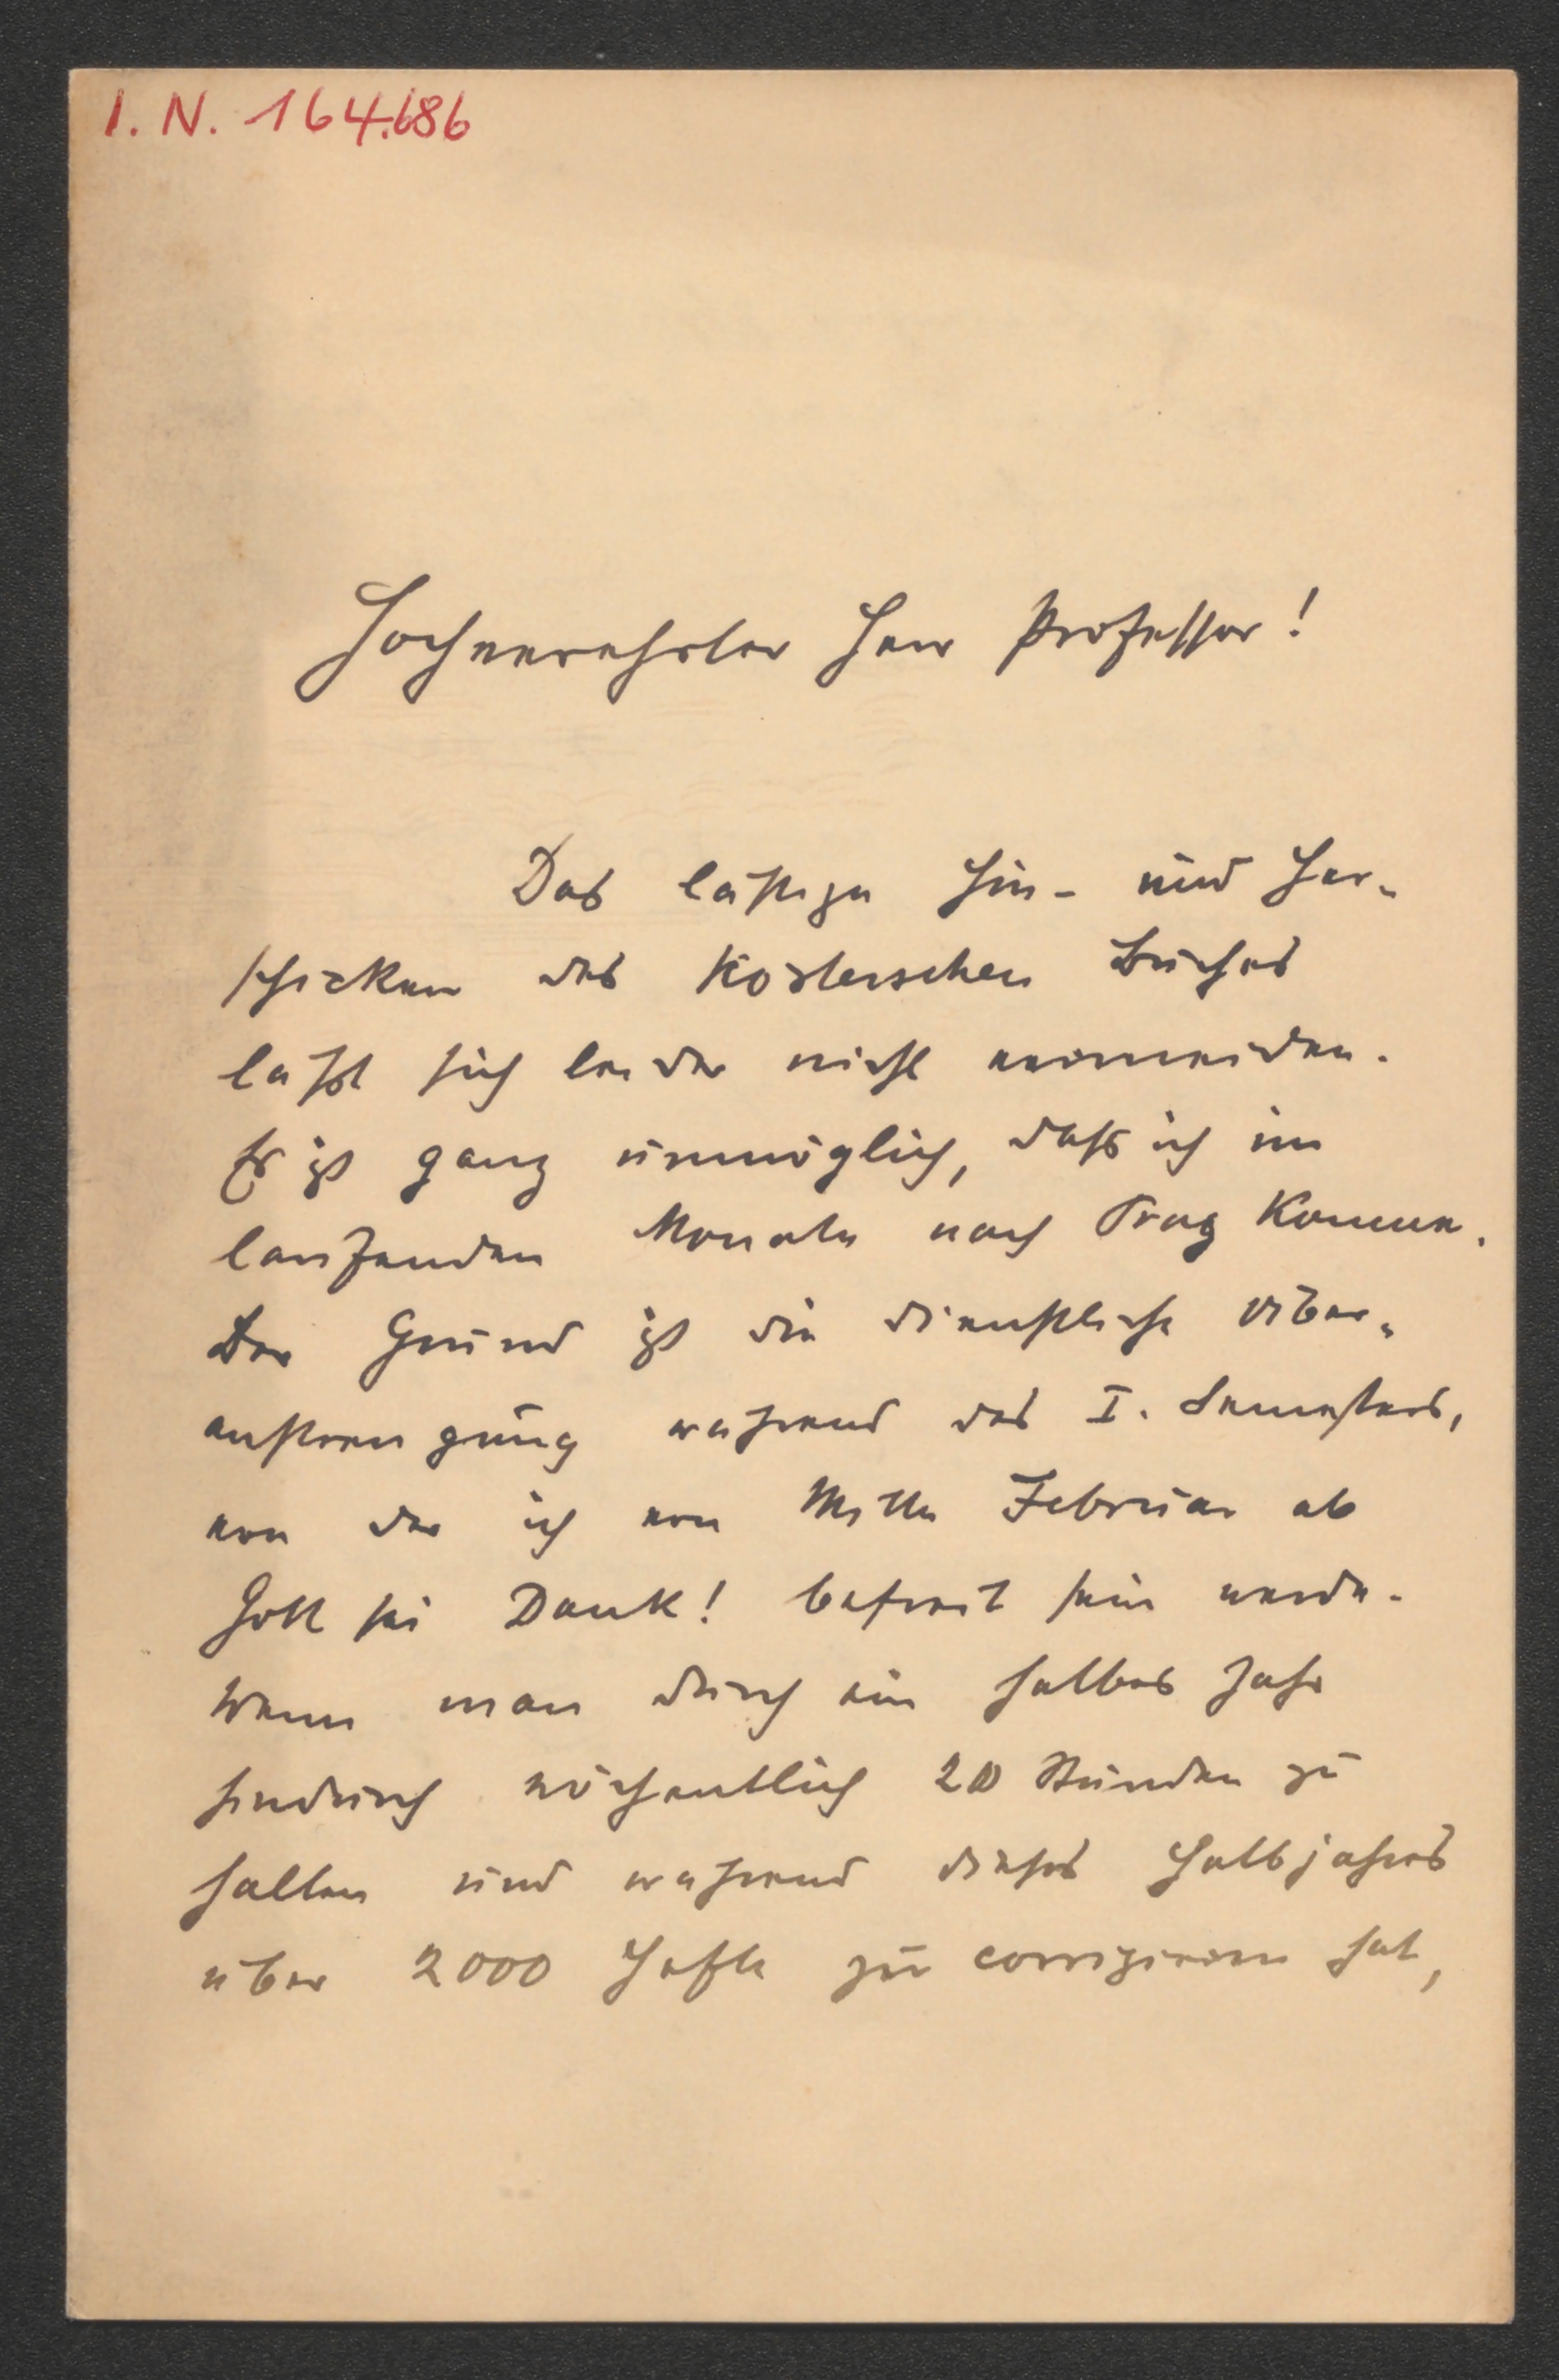 I. N. 164.686
Hochverehrter Herr Professor!
Das lästige Hin- und Her-
schicken des Kosterschen Buches
läßt sich leider nicht vermeiden.
Es ist ganz unmöglich, daß ich im
laufenden Monate nach Prag komme.
Der Grund ist die dienstliche Über-
anstrengung während des I. Semesters,
von der ich von Mitte Februar ab
Gott sei Dank! befreit sein werde.
Wenn man durch ein halbes Jahr
hindurch wöchentlich 20 Stunden zu
halten und während dieses Halbjahres
über 2000 Hefte zu corrigieren hat,